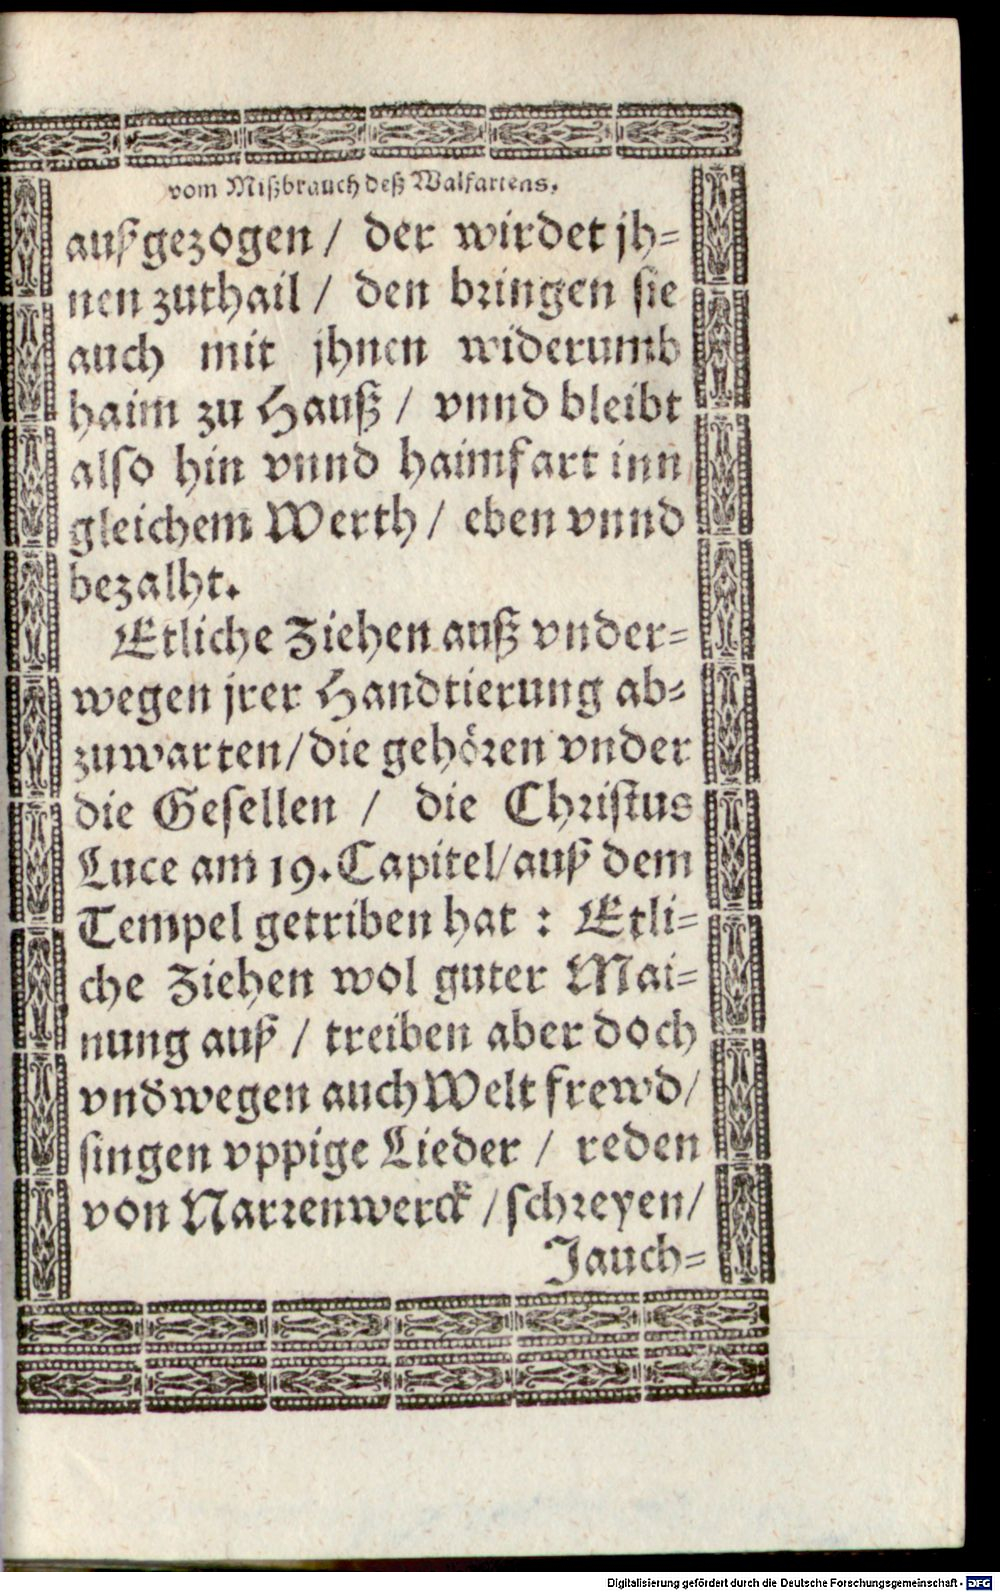 vom Mißbrauch deß Walfartens.
außgezogen / der wirdet jh=
nen zuthail / den bringen sie
auch mit jhnen widerumb
haim zu Hauß / vnnd bleibt
also hin vnnd haimfart inn
gleichem Werth / eben vnnd
bezalht.
Etliche Ziehen auß vnder=
wegen jrer Handtierung ab=
zuwarten/die gehören vnder
die Gesellen / die Christus
Luce am 19. Capitel/auß dem
Tempel getriben hat : Etli=
che Ziehen wol guter Mai=
nung auß / treiben aber doch
vnd̄wegen auch Welt frewd/
singen vppige Lieder / reden
von Narrenwerck /schreyen/
Jauch=
Digitalisierung gefördert durch die Deutsche Forschungsgemeinschaft - DFG